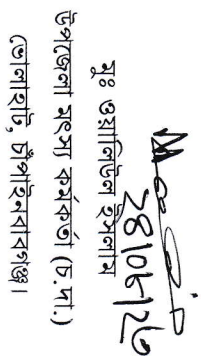 মুঃ ওয়ালিউল ইসলাম
উপজেলা মৎস্য কর্মকর্তা (চ.দা.)
ভোলাহাট, চাঁপাইনবাবগঞ্জ।